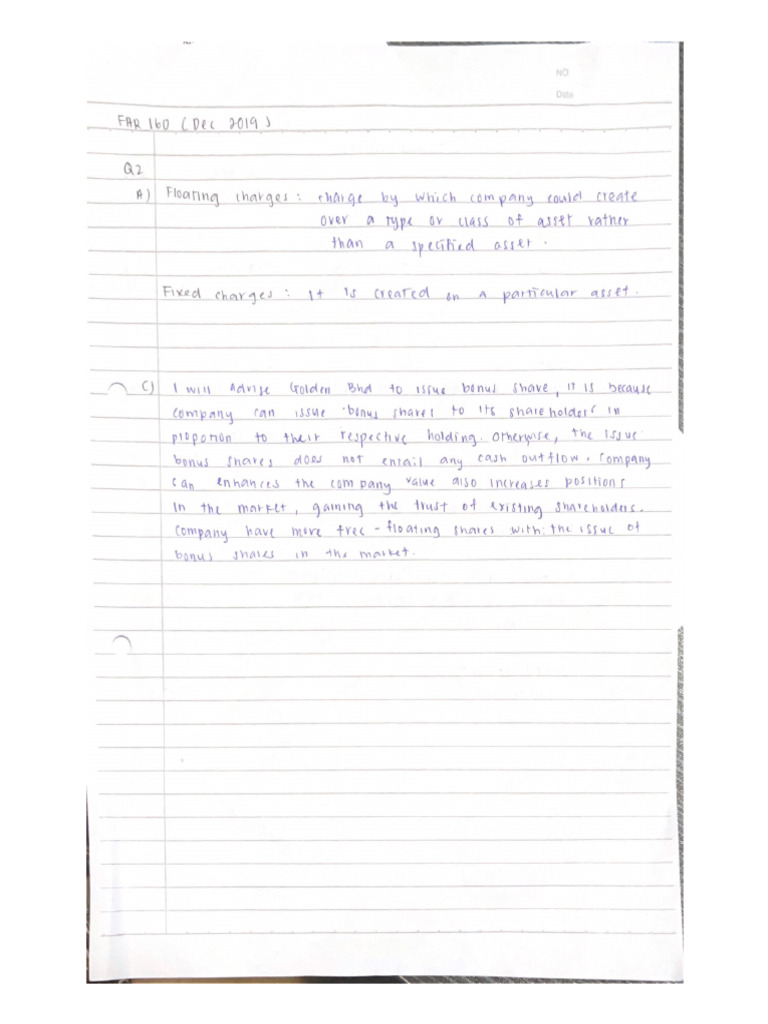 NO.
Date
FAR 160 (Dec 2019)
Q2
A) Floating charges : charge by which company could create
over a type or class of asset rather
than a specified asset.
Fixed charges : It is created on a particular asset.
C) I will Advise Golden Bhd to issue bonus share, it is because
company can issue bonus shares to its shareholders in
propotion to their respective holding. Otherwise, the issue
bonus shares does not entail any cash outflow. Company
can enhances the company value also increases positions
in the market, gaining the trust of existing shareholders.
Company have more free-floating shares with the issue of
bonus shares in the market.